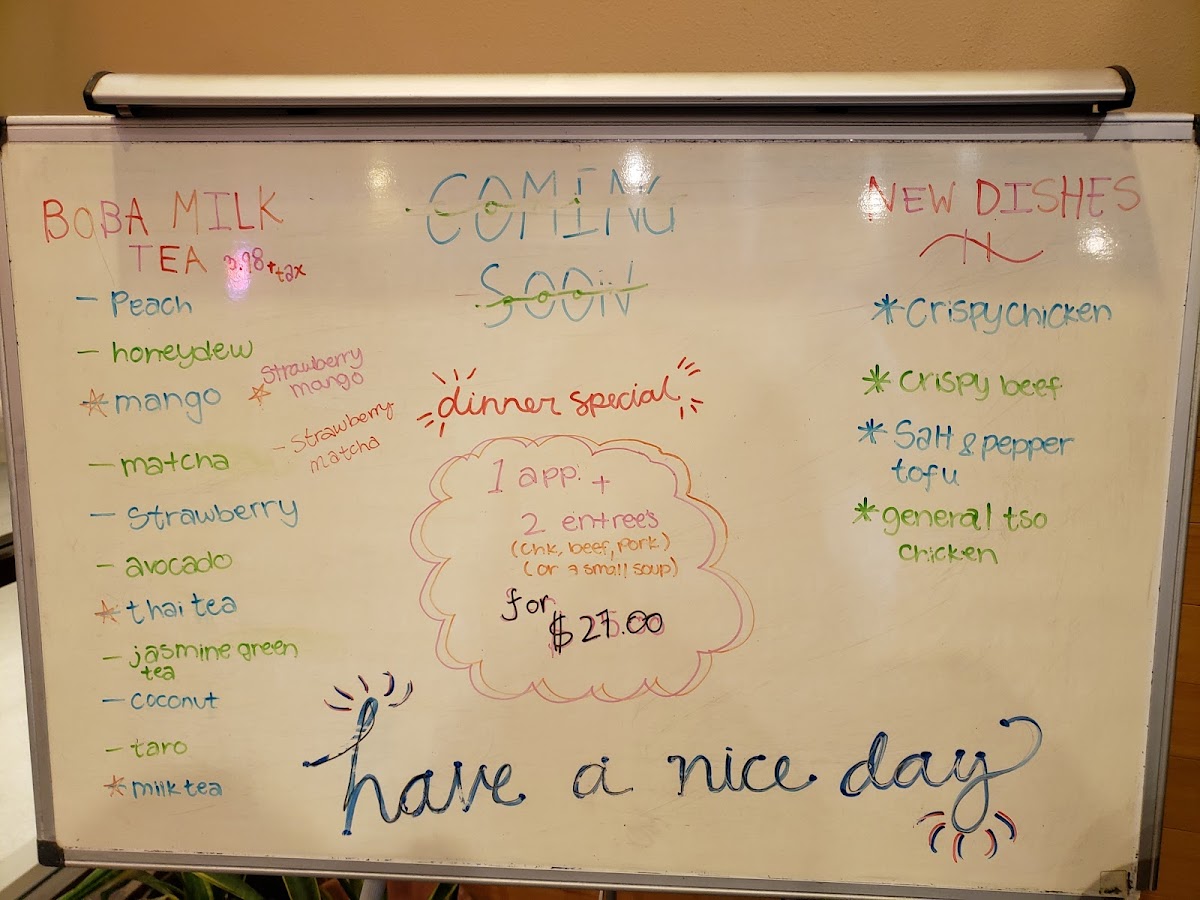 BOBA MILK
TEA 3.98 + tax
- Peach
- honeydew
* mango
☆ Strawberry
mango
- matcha
- Strawberry
matcha
- Strawberry
- avocado
* thai tea
- jasmine green
tea
- coconut
- taro
* milk tea
COMING
SOON
dinner special
1 app. +
2 entree's
(chk, beef, pork)
(or a small soup)
for
$27.00
NEW DISHES
* Crispy chicken
* Crispy beef
* Salt & pepper
tofu
* general tso
chicken
have a nice day